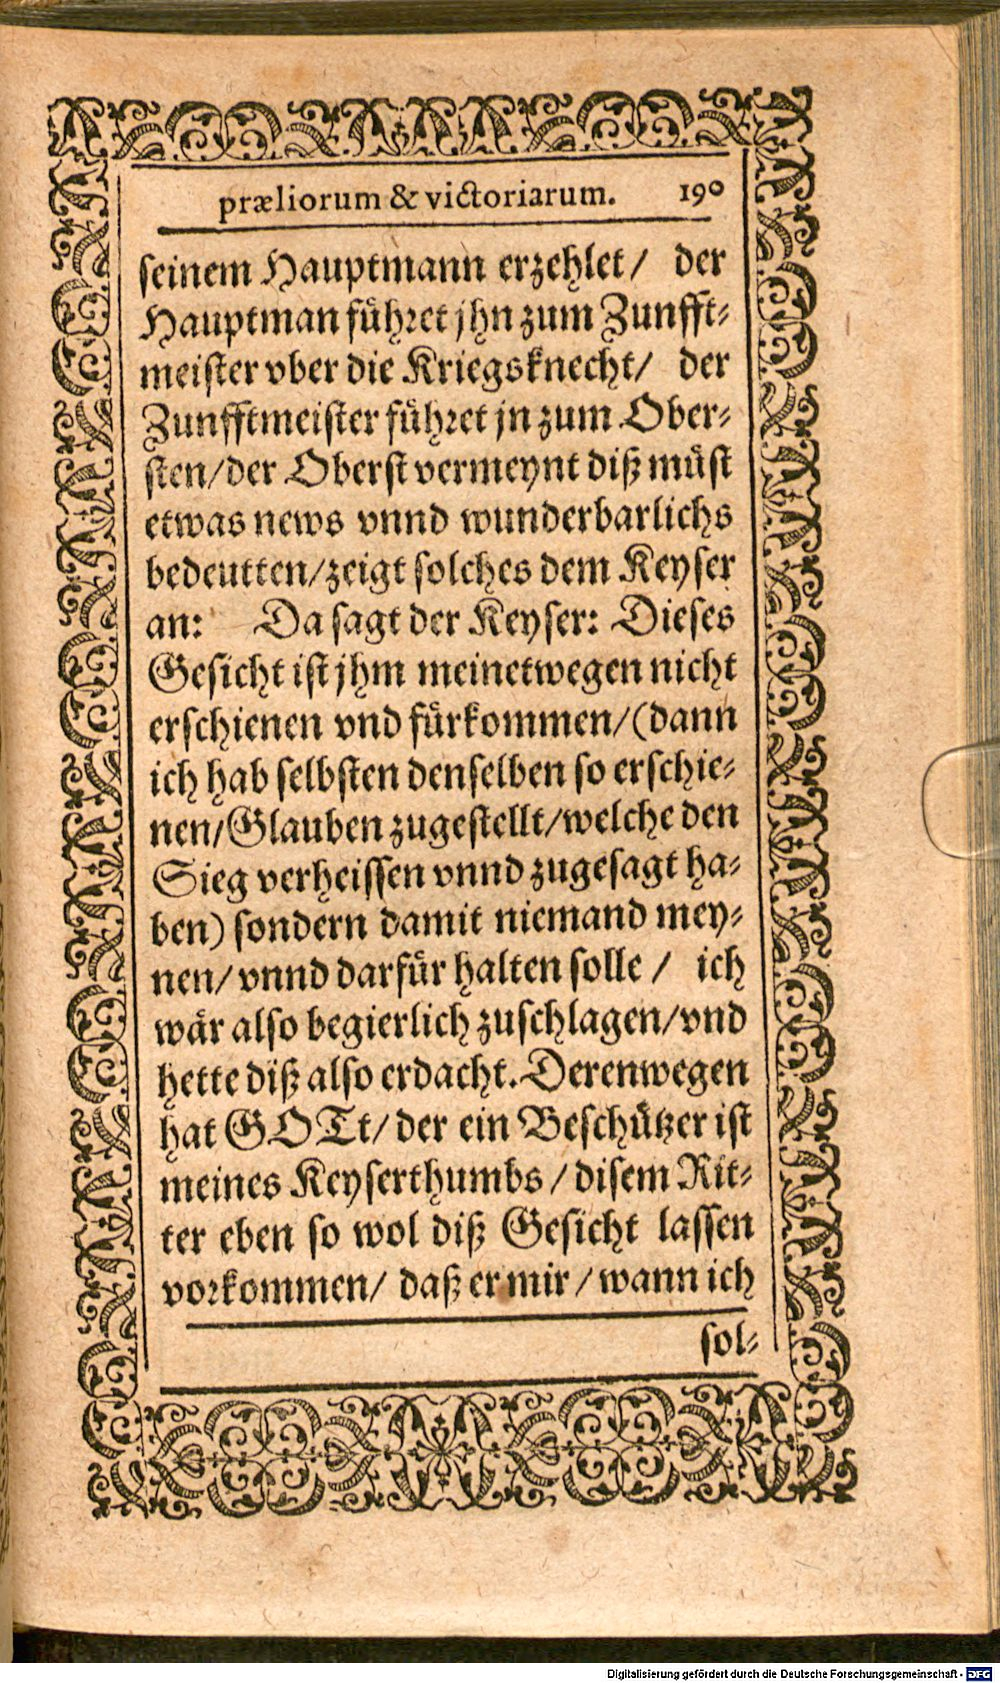 præliorum & victoriarum. 190
seinem Hauptmann erzehlet/ der
Hauptman führet jhn zum Zunfft-
meister vber die Kriegsknecht/ der
Zunfftmeister führet jn zum Ober-
sten/der Oberst vermeynt diß müst
etwas news vnnd wunderbarlichs
bedeutten/zeigt solches dem Keyser
an: Da sagt der Keyser: Dieses
Gesicht ist jhm meinetwegen nicht
erschienen vnd fürkommen/(dann
ich hab selbsten denselben so erschie-
nen/Glauben zugestellt/welche den
Sieg verheissen vnnd zugesagt ha-
ben) sondern damit niemand mey-
nen/ vnnd darfür halten solle / ich
wär also begierlich zuschlagen/vnd
hette diß also erdacht. Derenwegen
hat GOTt/ der ein Beschützer ist
meines Keyserthumbs / disem Rit-
ter eben so wol diß Gesicht lassen
vorkommen/ daß er mir / wann ich
sol-
Digitalisierung gefördert durch die Deutsche Forschungsgemeinschaft - DFG